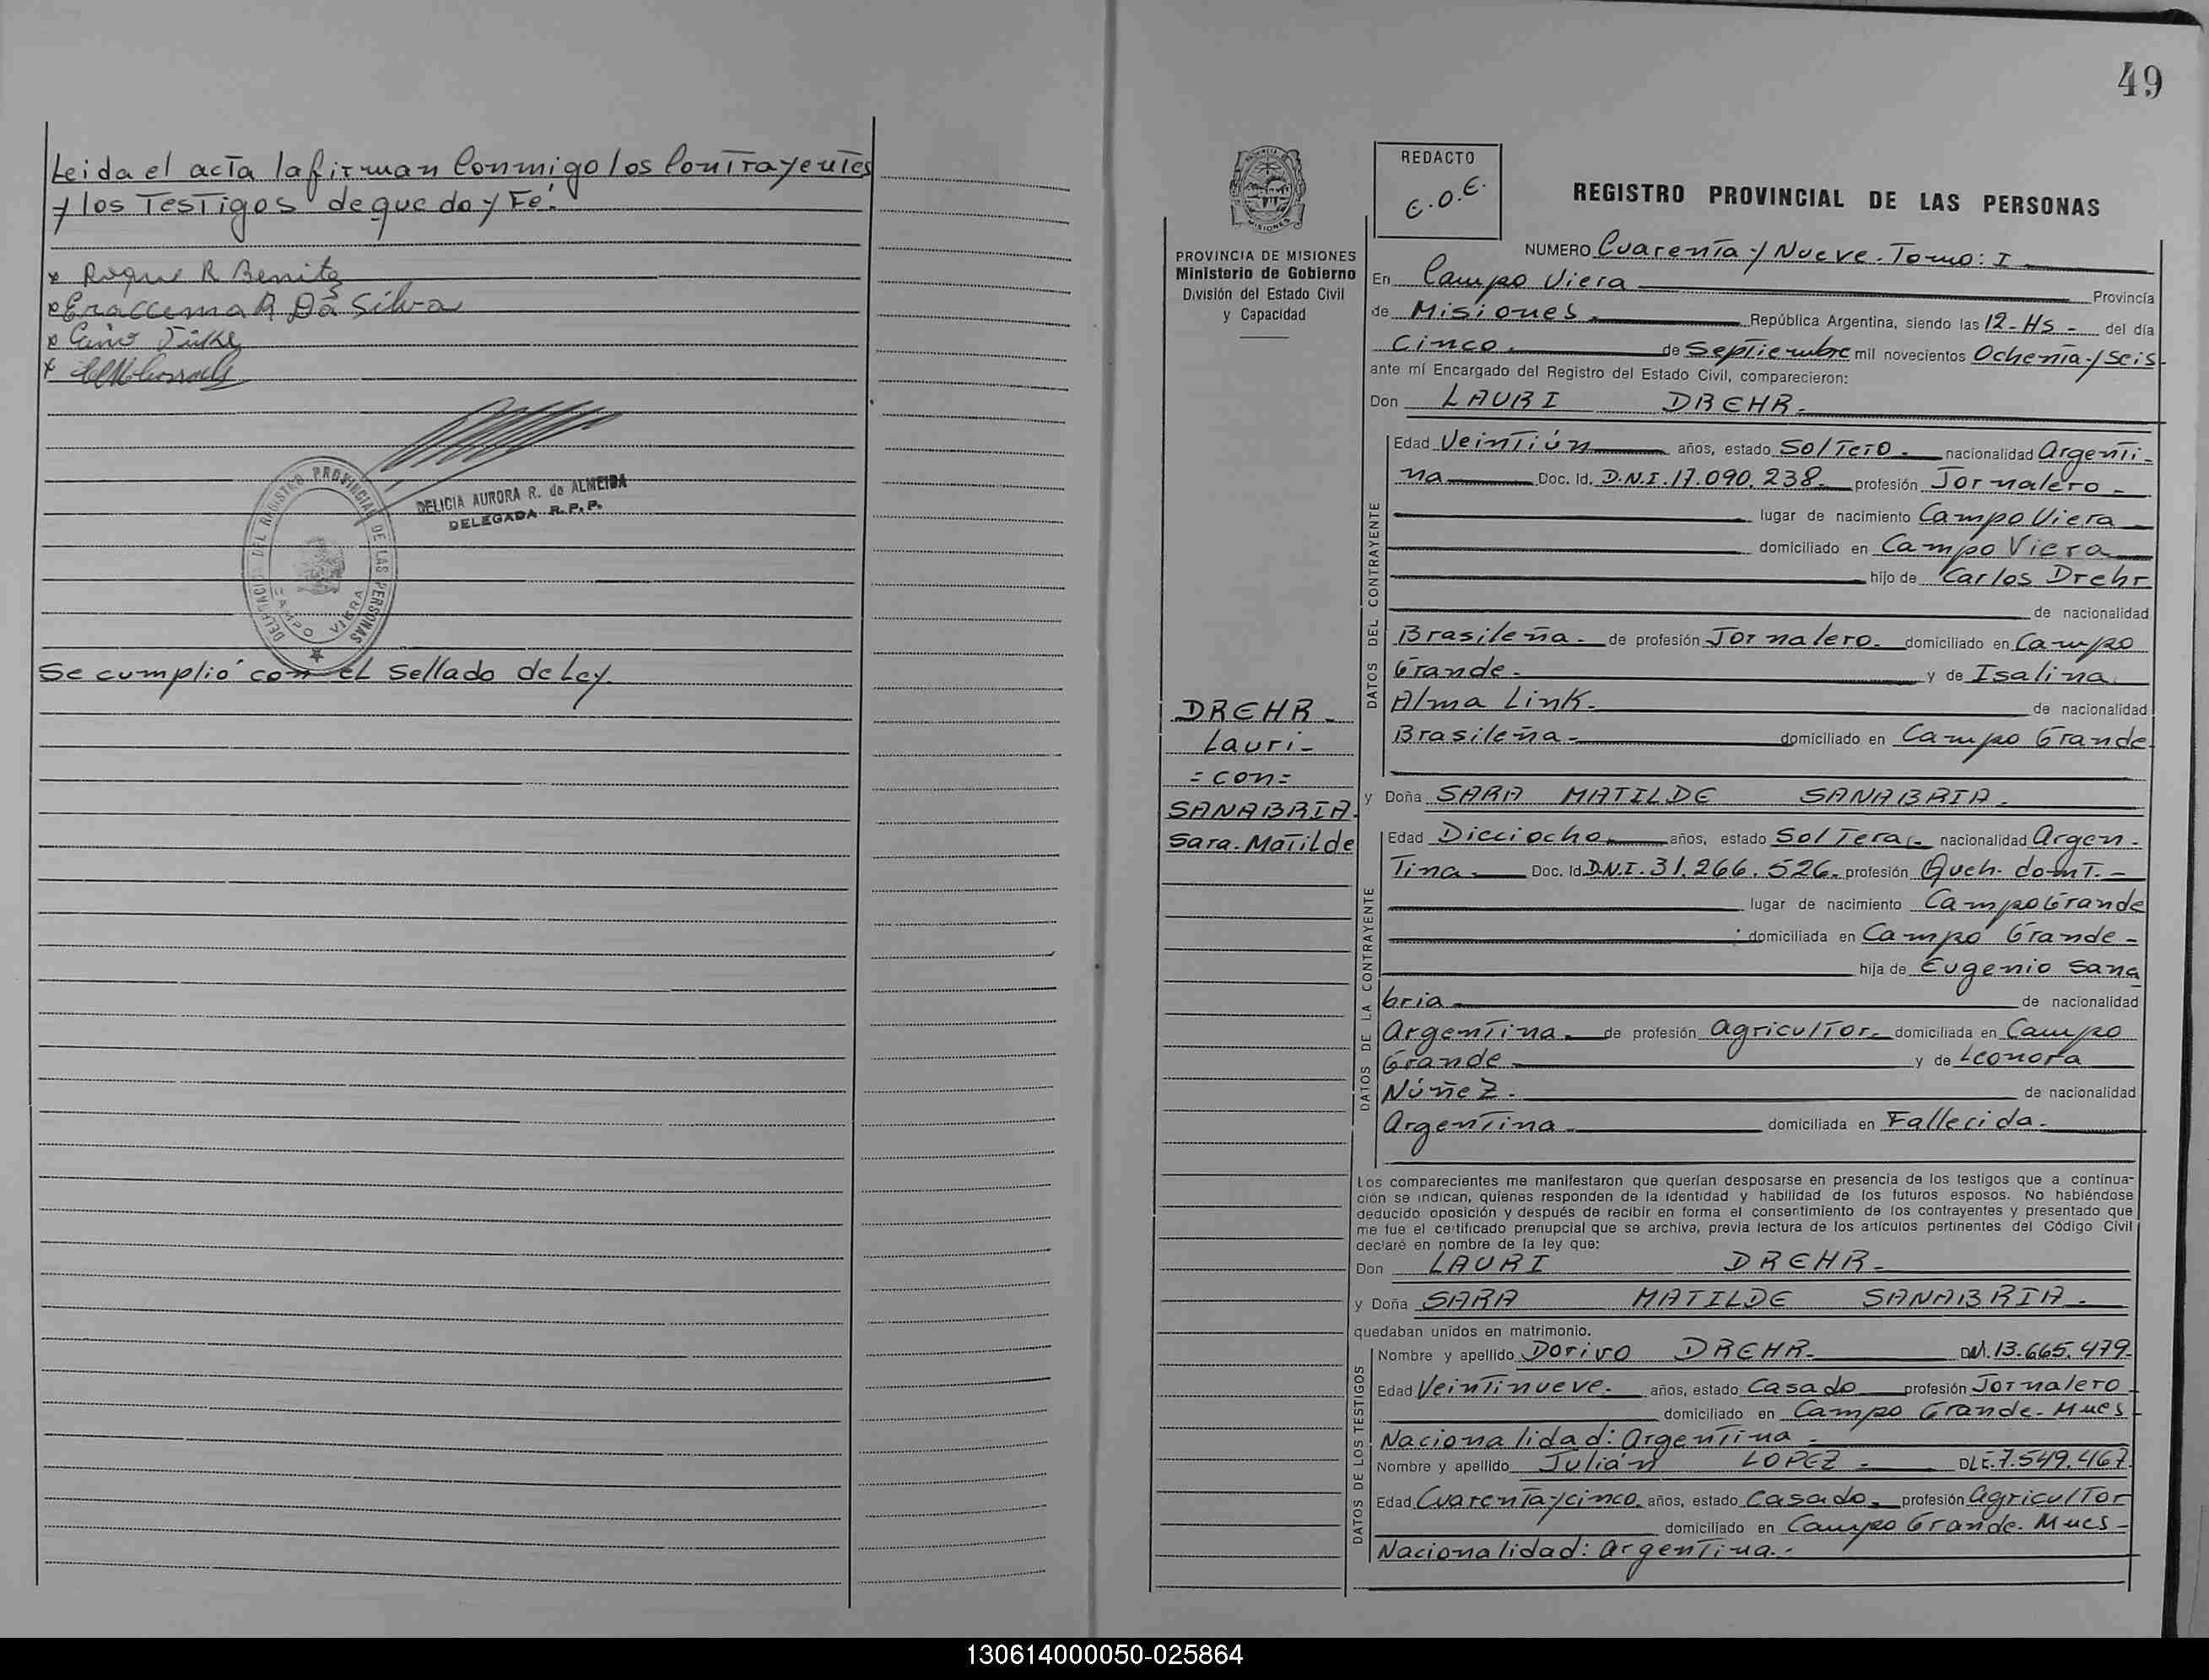 Leida el acta la firman Conmigo los Contrayentes
y los Testigos de que doy Fé.
x Roque R Benitez
x Eraccema R Da Silva
x
x
DELEGACION DEL REGISTRO PROVINCIAL DE LAS PERSONAS
CAMPO VIERA
DELICIA AURORA R. de ALMEIDA
DELEGADA R. P. P.
Se cumplió con el sellado de Ley.
49
PROVINCIA DE MISIONES
Ministerio de Gobierno
División del Estado Civil
y Capacidad
DREHR -
Lauri -
= con =
SANABRIA.
Sara. Matilde
REDACTO
E.O.E.
REGISTRO PROVINCIAL DE LAS PERSONAS
NUMERO Cuarenta y Nueve. Tomo: I
En Campo Viera Provincia
de Misiones. República Argentina, siendo las 12-Hs - del día
Cinco. de Septiembre mil novecientos Ochenta y seis
ante mí Encargado del Registro del Estado Civil, comparecieron:
Don LAURI DREHR.
DATOS DEL CONTRAYENTE
Edad Veintiún años, estado Soltero. nacionalidad Argenti-
na Doc. Id. D.N.I. 17.090.238. profesión Jornalero -
lugar de nacimiento Campo Viera
domiciliado en Campo Viera
hijo de Carlos Drehr
de nacionalidad
Brasileña. de profesión Jornalero. domiciliado en Campo
Grande. y de Isalina
Alma Link. de nacionalidad
Brasileña - domiciliado en Campo Grande
y Doña SARA MATILDE SANABRIA.
DATOS DE LA CONTRAYENTE
Edad Dieciocho años, estado Soltera nacionalidad Argen-
tina. Doc. Id. D.N.I. 31.266.526. profesión Queh. domt. -
lugar de nacimiento Campo Grande
domiciliada en Campo Grande -
hija de Eugenio Sana
bria de nacionalidad
Argentina. de profesión Agricultor. domiciliada en Campo
Grande y de Leonora
Núñez. de nacionalidad
Argentina domiciliada en Fallecida.
Los comparecientes me manifestaron que querían desposarse en presencia de los testigos que a continua-
ción se indican, quienes responden de la identidad y habilidad de los futuros esposos. No habiéndose
deducido oposición y después de recibir en forma el consentimiento de los contrayentes y presentado que
me fue el certificado prenupcial que se archiva, previa lectura de los artículos pertinentes del Código Civil
declaré en nombre de la ley que:
Don LAURI DREHR -
y Doña SARA MATILDE SANABRIA -
quedaban unidos en matrimonio.
DATOS DE LOS TESTIGOS
Nombre y apellido Dorivo DREHR. 13.665.479.
Edad Veintinueve. años, estado Casado profesión Jornalero
domiciliado en Campo Grande - Mnes
Nacionalidad: Argentina -
Nombre y apellido Julián LOPEZ - D L E. 7.549.467.
Edad Cuarenta y cinco. años, estado Casado profesión Agricultor
domiciliado en Campo Grande. Mnes -
Nacionalidad: Argentina. -
130614000050-025864